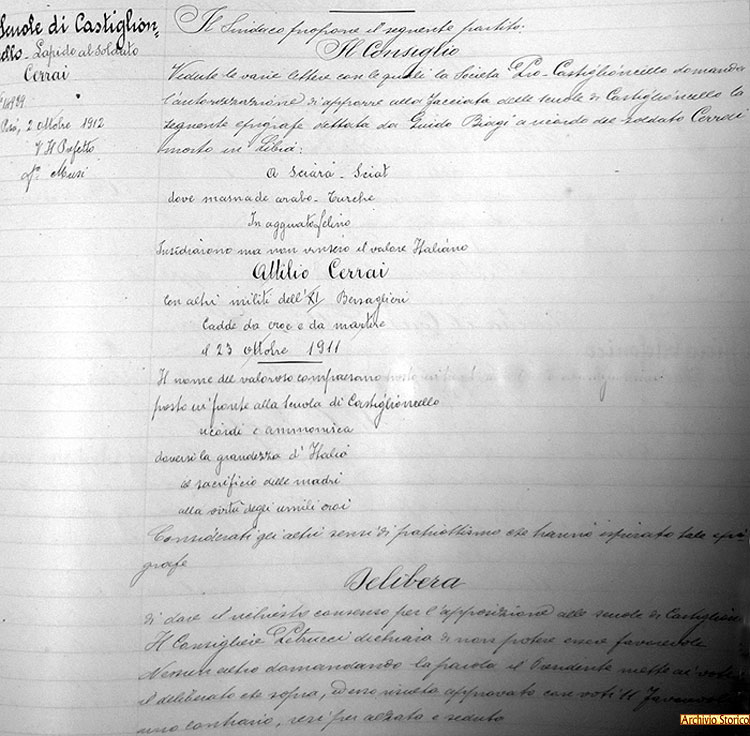 Scuole di Castiglion=
cello - Lapide al soldato
Cerrai
N° 14829
Pisa, 2 ottobre 1912
V° Il Prefetto
f° Musi
Il Sindaco propone il seguente partito:
Il Consiglio
Vedute le varie lettere con le quali la Società Pro-Castiglioncello domanda
l'autorizzazione di apporre alla facciata delle scuole di Castiglioncello la
seguente epigrafe dettata da Guido Biagi a ricordo del soldato Cerrai
morto in Libia:
A Sciara-Sciat
dove masnade arabo-turche
In agguato felino
Insidiarono ma non vinsero il valore Italiano
Attilio Cerrai
Con altri militi dell'XI Bersaglieri
Cadde da eroe e da martire
il 23 ottobre 1911
Il nome del valoroso compaesano
posto in fronte alla scuola di Castiglioncello
ricordi e ammonisca
doversi la grandezza d'Italia
al sacrificio delle madri
alla virtù degli umili eroi
Considerati gli altri sensi di patriottismo che hanno ispirato tale epi=
grafe
Delibera
di dare il richiesto consenso per l'apposizione alle scuole di Castiglion
Il Consigliere Petrucci dichiara di non potere essere favorevole
Nessun altro domandando la parola il Presidente mette ai voti
il deliberato che sopra, e approvato con voti favorevoli
uno contrario, resi per alzata e seduta
Archivio Storico